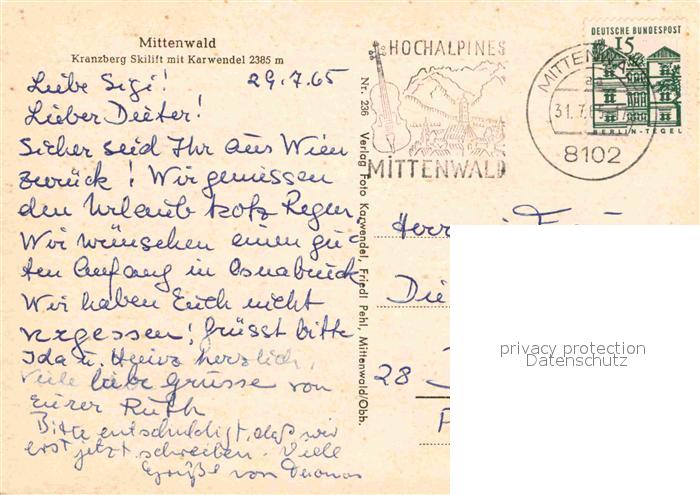 Mittenwald
Kranzberg Skilift mit Karwendel 2385 m
29.7.65
Liebe Sigi!
Lieber Dieter!
Sicher seid Ihr aus Wien
zurück! Wir geniessen
den Urlaub trotz Regen
Wir wünschen einen gu-
ten Anfang in Osnabrück
Wir haben Euch nicht
vergessen! Grüsst bitte
Ida u. Heinz herzlich,
Viele liebe Grüsse von
Eurer Ruth
Bitte entschuldigt, daß wir
erst jetzt schreiben. Viele
Grüße von
Nr. 236 Verlag Foto Karwendel, Friedl Pehl, Mittenwald/Obb.
HOCHALPINES
MITTENWALD
MITTENWA
31.7.6
8102
DEUTSCHE BUNDESPOST
15
BERLIN-TEGEL
Herrn
Die
28
privacy protection
Datenschutz